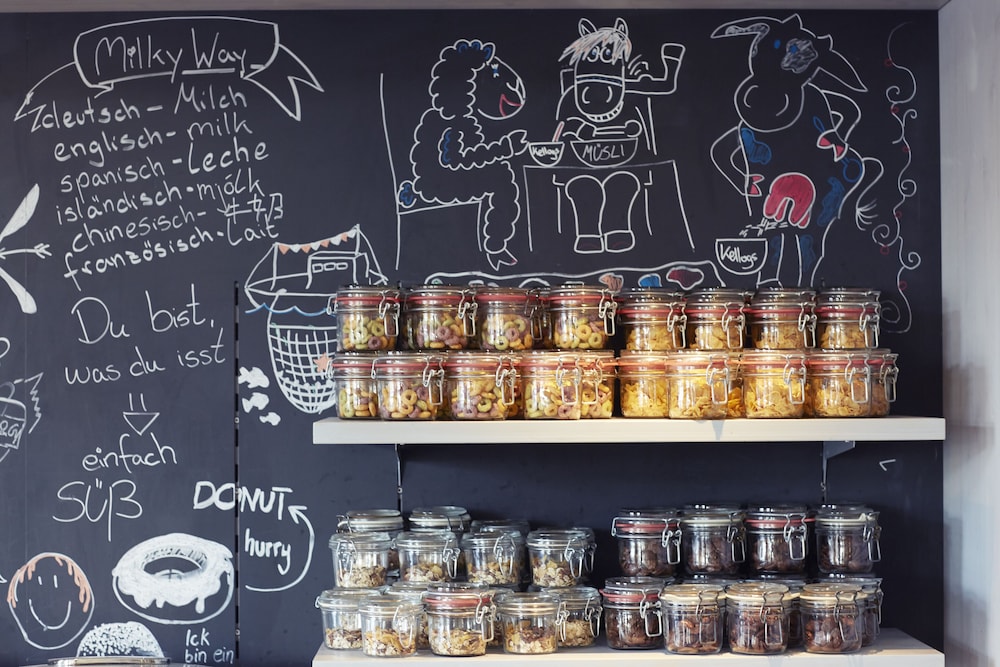 Milky Way
deutsch - Milch
englisch - milk
spanisch - Leche
isländisch - mjólk
chinesisch - 牛奶
französisch - Lait
Du bist,
was du isst
einfach
süß
DONUT
hurry
Ick
bin ein
Kellogs
MÜSLI
Kellogs